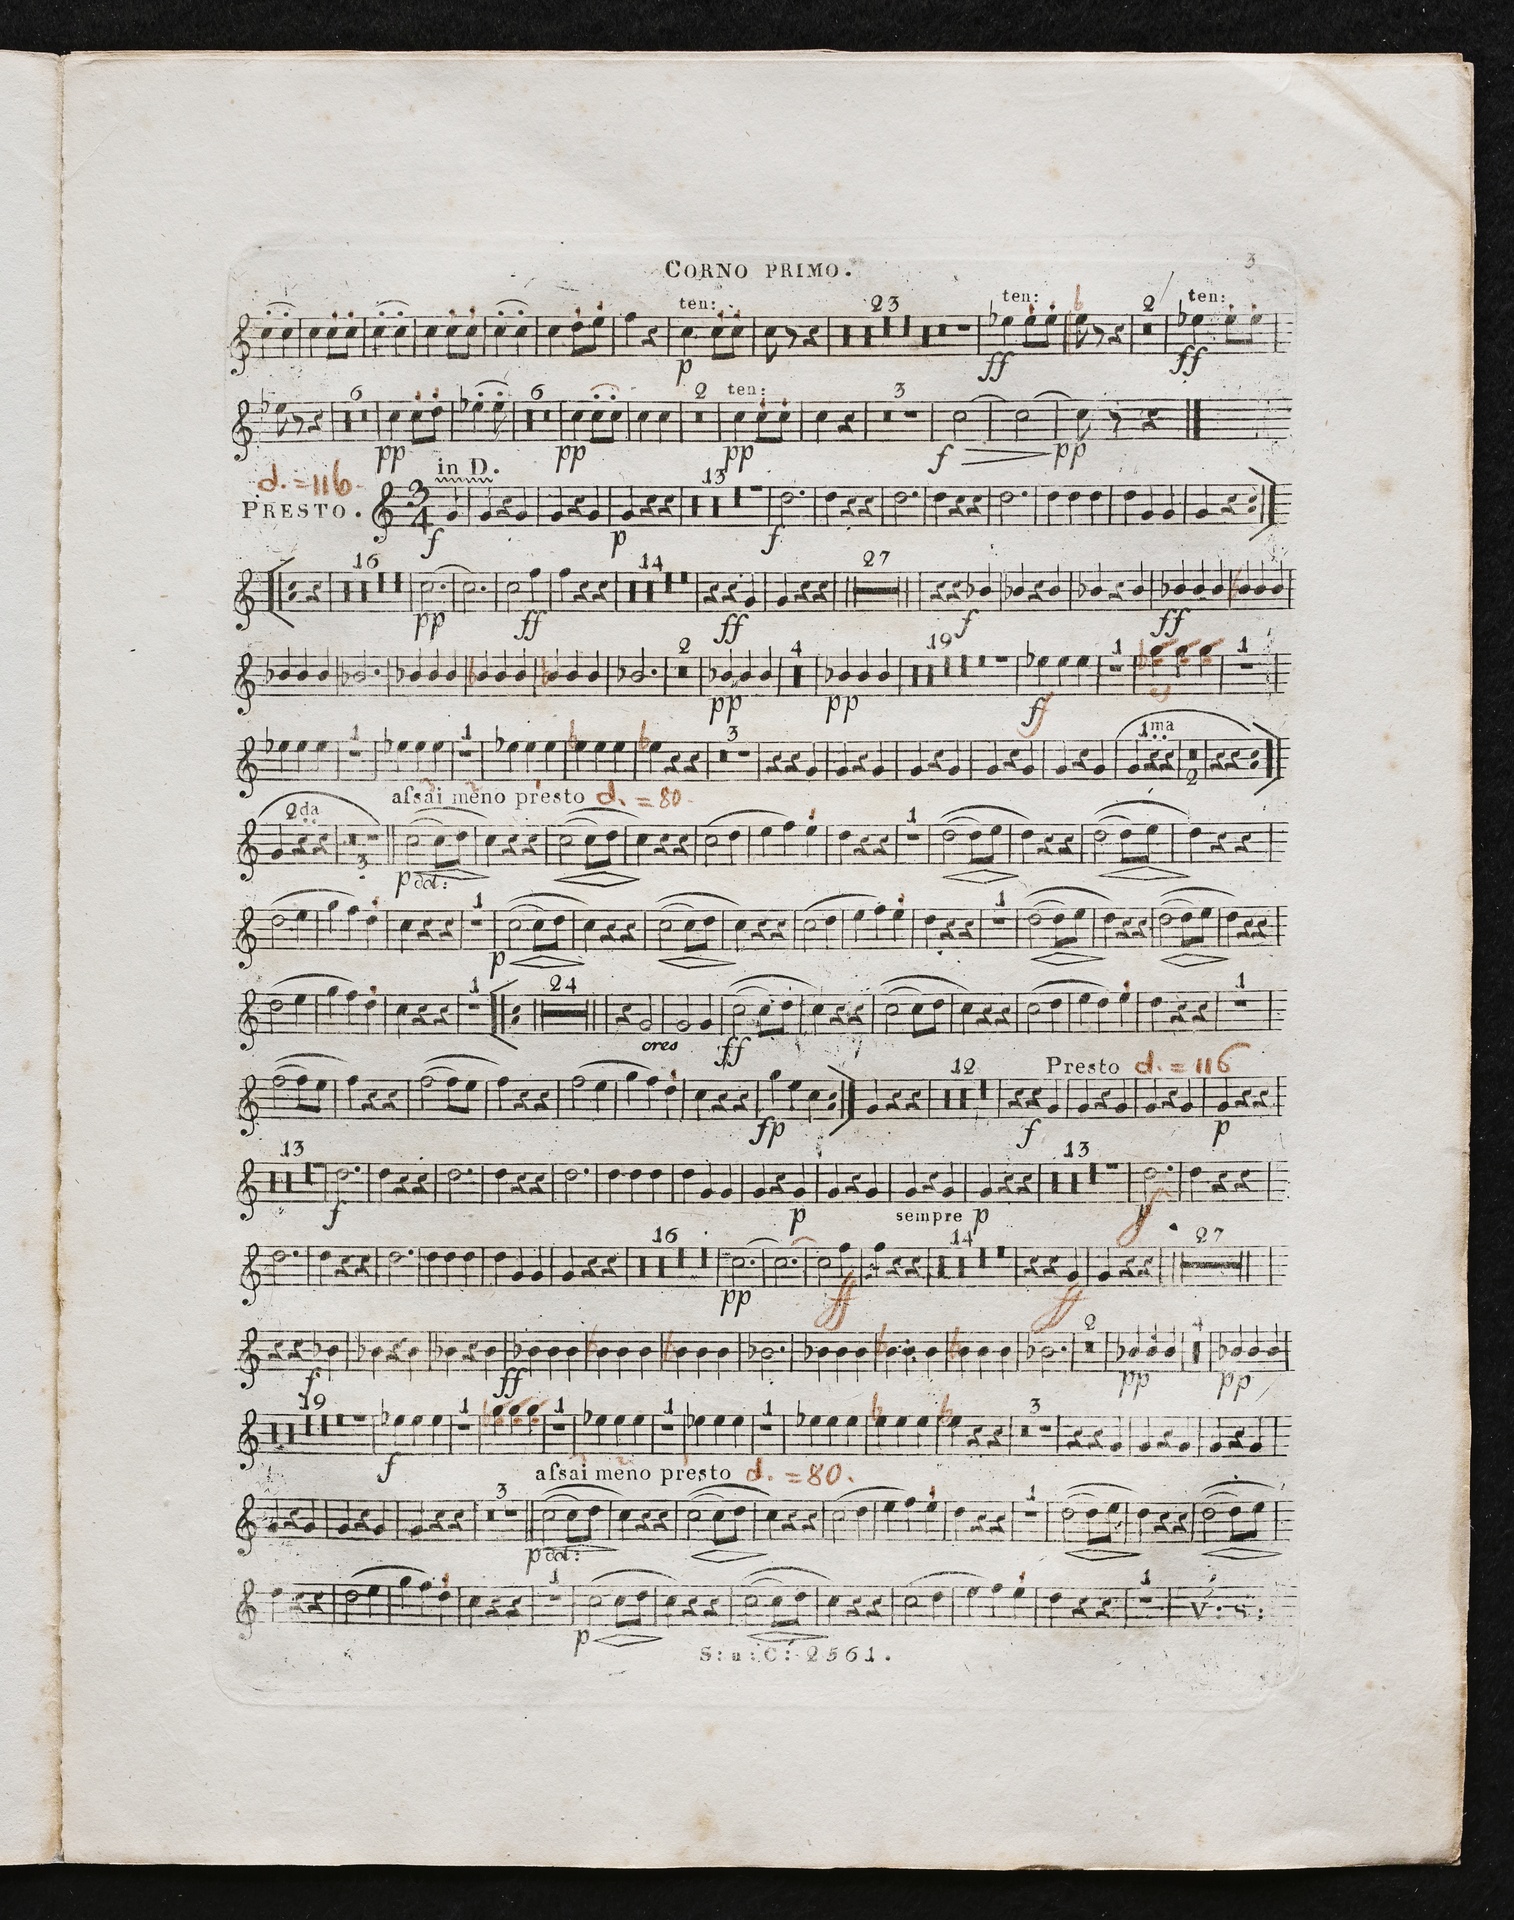 CORNO PRIMO. 3
ten: 23 ten: b 2 ten:
p ff ff
6 6 2 ten: 3
pp pp pp f pp
d. = 116.
in D. 13
PRESTO. 3/4
f p f
16 14 27
pp ff ff f ff
2 4 19 1 1
pp pp ff
1 1 b b 3 1ma 2
2da assai meno presto d. = 80.
1 3
p dol:
1 1
p
1 24 1
cres ff
12 Presto d. = 116
fp f p
13 13
f p sempre p f
16 14 27
pp ff ff
2 4
f ff pp pp
19 1 1 1 1 b b 3
f
assai meno presto d. = 80.
3 1
p dol:
1 1 V: S:
p
S: u: C: 2561.